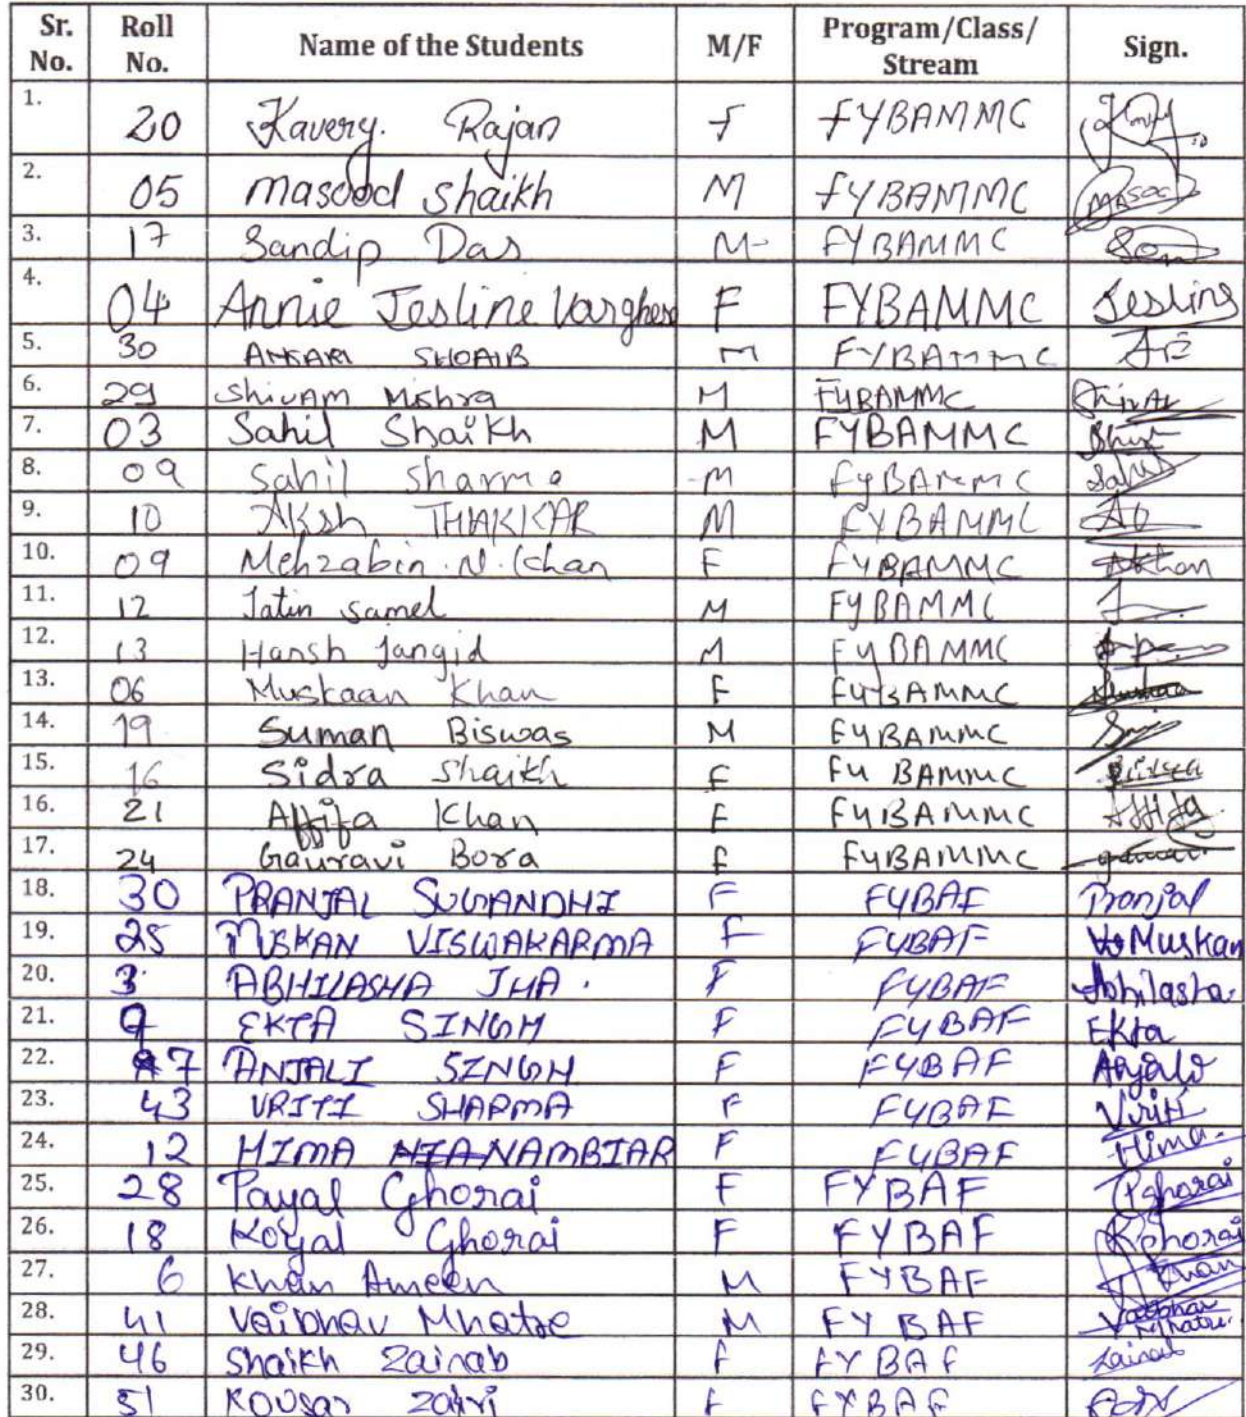 Sr. No. Roll No. Name of the Students M/F Program/Class/Stream Sign.
1. 20 Kavery. Rajan F FYBAMMC
2. 05 Masood Shaikh M FYBAMMC Masood
3. 17 Sandip Das M FYBAMMC
4. 04 Annie Jesline Varghese F FYBAMMC Jesline
5. 30 ANSARI SHOAIB M FYBAMMC
6. 29 Shivam Mishra M FYBAMMC
7. 03 Sahil Shaikh M FYBAMMC
8. 09 Sahil Sharma M FYBAMMC
9. 10 Aksh THAKKAR M FYBAMMC
10. 09 Mehzabin. N. Khan F FYBAMMC
11. 12 Jatin Samel M FYBAMMC
12. 13 Harsh Jangid M FYBAMMC
13. 06 Muskaan Khan F FYBAMMC
14. 19 Suman Biswas M FYBAMMC
15. 16 Sidra Shaikh F FYBAMMC
16. 21 Affifa Khan F FYBAMMC
17. 24 Gauravi Bora F FYBAMMC
18. 30 PRANJAL SUGANDHI F FYBAF Pranjal
19. 25 MUSKAN VISWAKARMA F FYBAF Muskan
20. 3 ABHILASHA JHA. F FYBAF Abhilasha
21. 9 EKTA SINGH F FYBAF Ekta
22. 7 ANJALI SINGH F FYBAF Anjali
23. 43 VRITI SHARMA F FYBAF Vriti
24. 12 HIMA NAMBIAR F FYBAF Hima
25. 28 Payal Ghorai F FYBAF PGhorai
26. 18 Koyal Ghorai F FYBAF KGhorai
27. 6 Khan Ameen M FYBAF Khan
28. 41 Vaibhav Mhatre M FYBAF Vaibhav Mhatre
29. 46 Shaikh Zainab F FYBAF Zainab
30. 51 Kousar F FYBAF